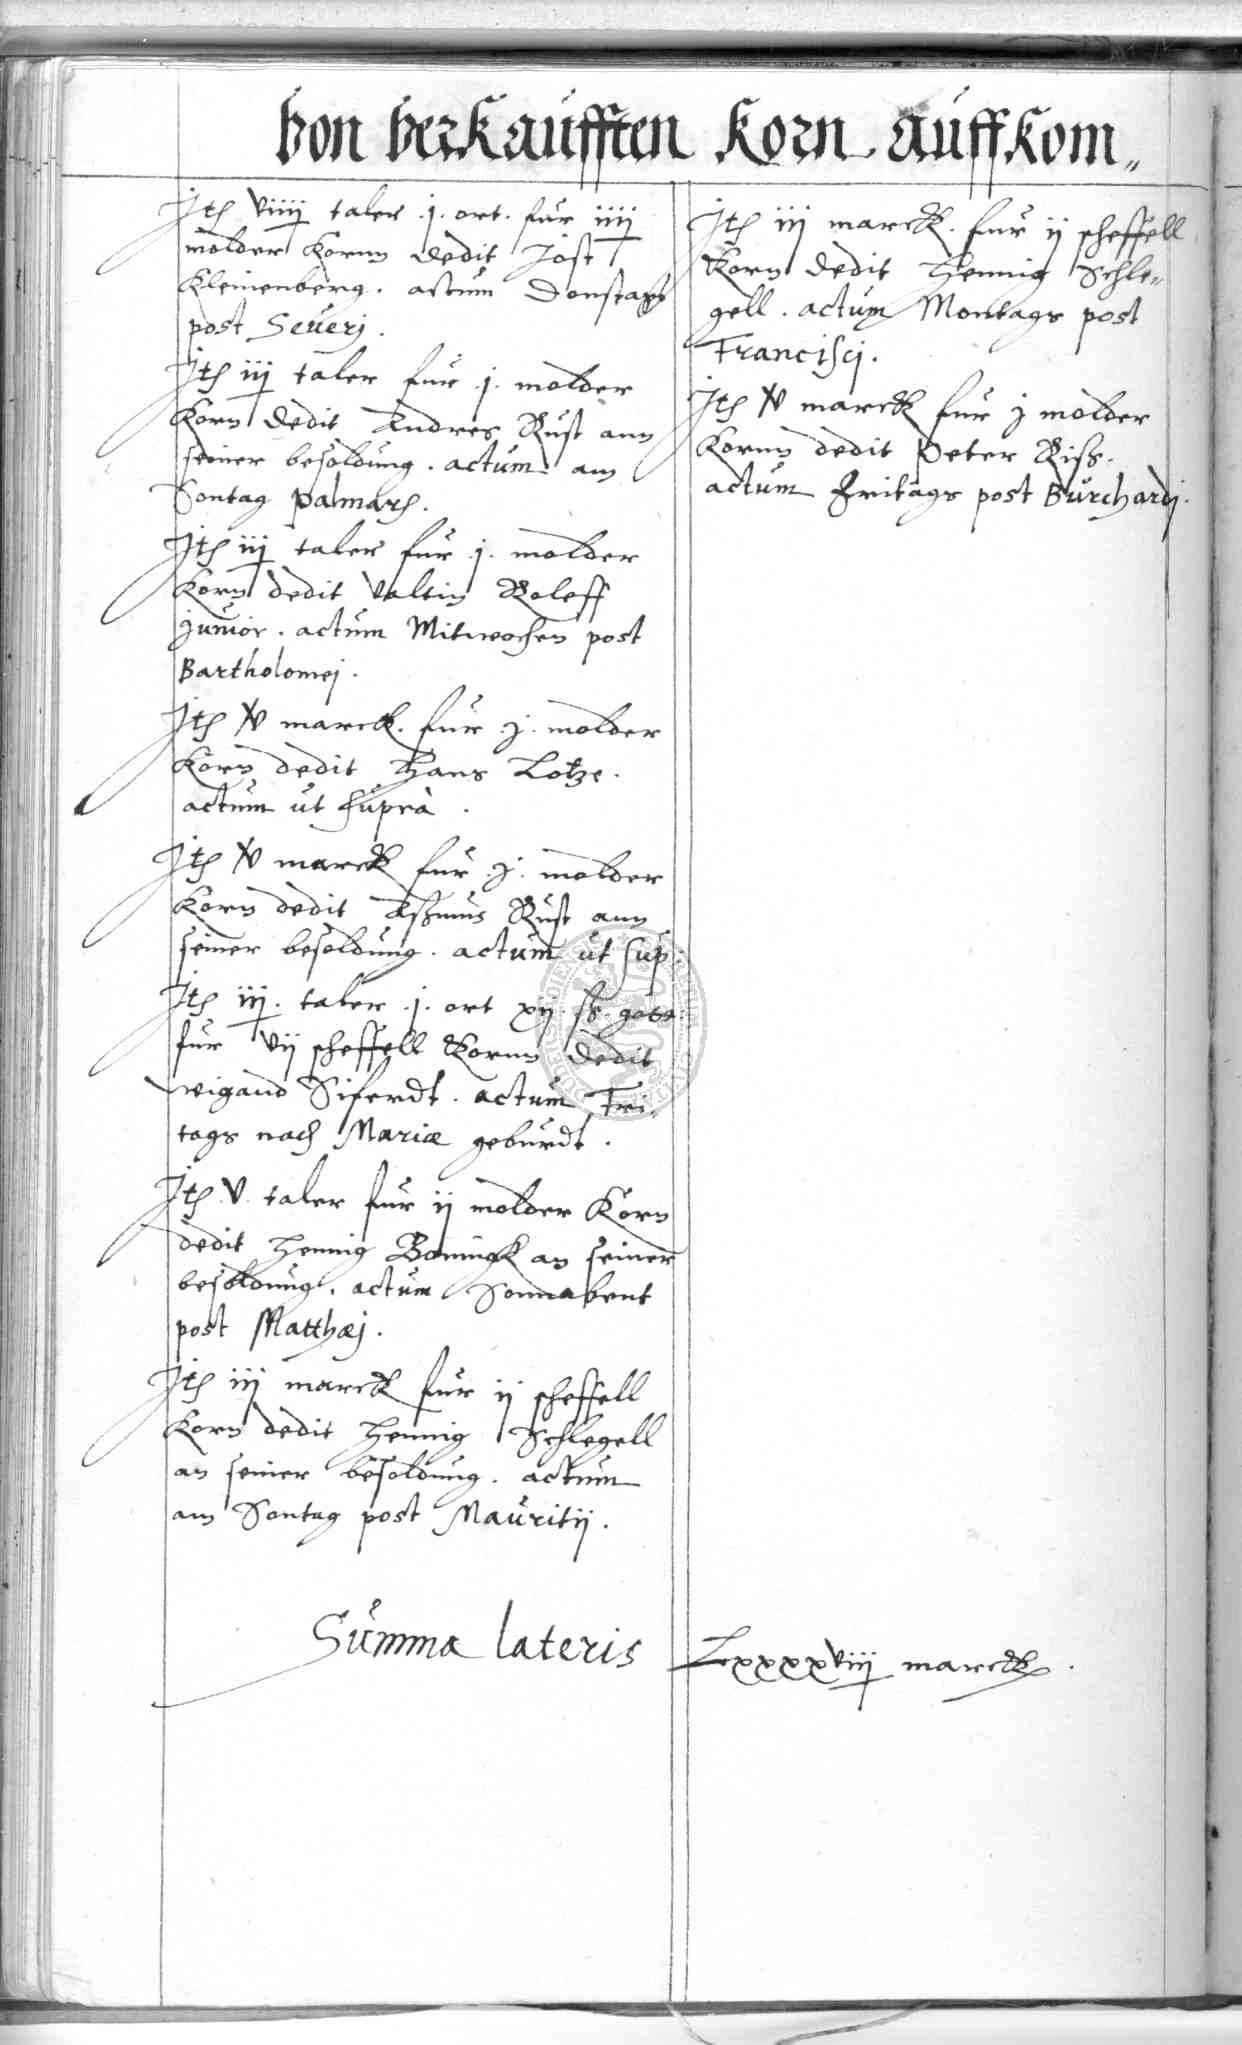 Von verkaufften Korn auffkom„
Jth viiij taler .j. ort. fur iiij
molder Kornn dedit Jost
Kleinenberg. actum Donstags
post Severj.
Jth iij taler fur .j. molder
Korn dedit Andres Rust ann
seiner besoldung. actum am
Sontag palmarh.
Jth iij taler fur .j. molder
Korn dedit Valtin Roleff
Junior. actum Mitwochen post
Bartholomej.
Jth v marck. fur .j. molder
Korn dedit Hans Lotze.
actum ut supra.
Jth v marck fur .j. molder
Korn dedit Aßmus Rust ann
seiner besoldung. actum ut sup:
Jth iij. taler .j. ort xij. ß. gots.
fur vij scheffell Kornn dedit
wigand Siferdt. actum Fri„
tags nach Mariæ geburdt.
Jth v. taler fur ij molder Korn
dedit Hennig Boningk an seiner
besoldung. actum Sonnabent
post Matthæj.
Jth iij marck fur ij scheffell
Korn dedit Hennig Schlegell
an seiner besoldung. actum
am Sontag post Mauritij.
Jth iij marck. fur ij scheffell
Korn dedit Hennig Schle„
gell. actum Montags post
Francisci.
Jth v marck fur j molder
Kornn dedit Peter Riss.
actum Fritags post Burchardj.
Summa lateris Lxxxxviij marck.